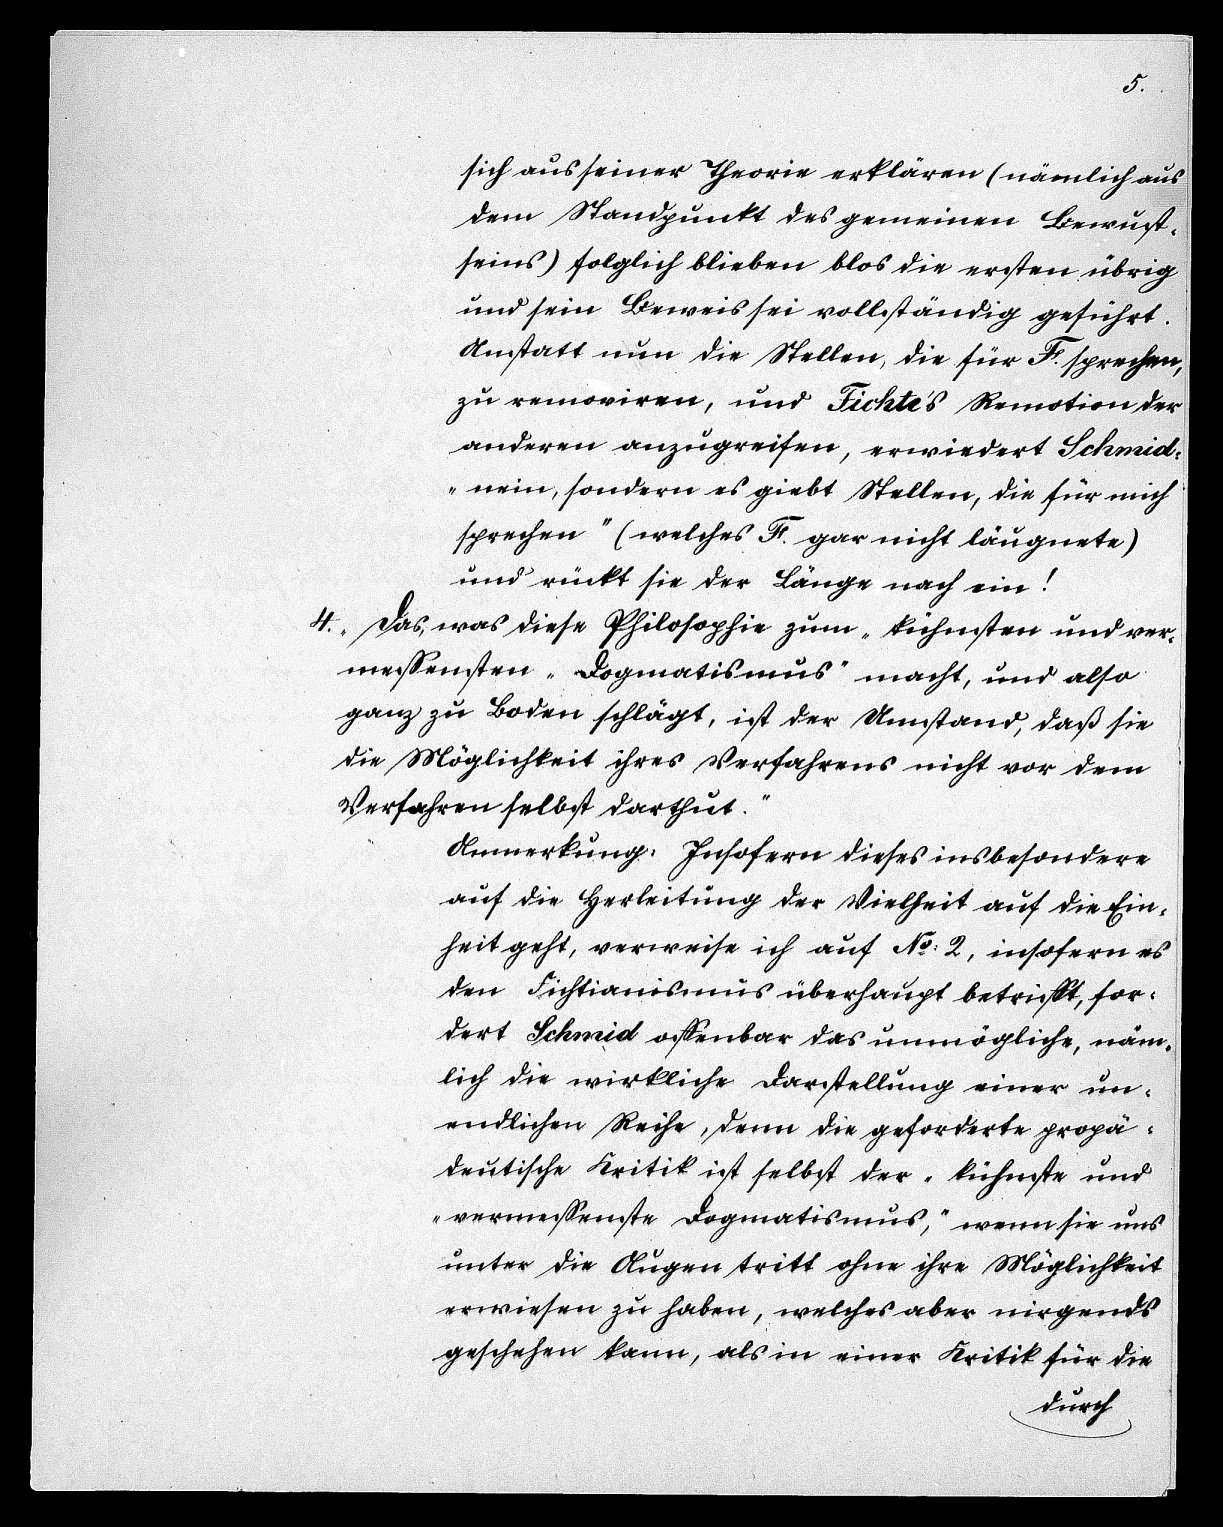 5.
sich aus seiner Theorie erklären (nämlich aus
dem Standpunkt des gemeinen Bewust-
seins) folglich blieben blos die ersten übrig
und sein Beweis sei vollständig geführt.
Anstatt nun die Stellen, die für F. sprechen,
zu removiren, und Fichte's Remotion der
anderen anzugreifen, erwiedert Schmid:
„nein, sondern es giebt Stellen, die für mich
sprechen" (welches F. gar nicht läugnete)
und rückt sie der Länge nach ein!
4. „Das, was diese Philosophie zum „kühnsten und ver-
messensten „Dogmatismus" macht, und also
ganz zu Boden schlägt, ist der Umstand, daß sie
die Möglichkeit ihres Verfahrens nicht vor dem
Verfahren selbst darthut."
Anmerkung: Insofern dieses insbesondere
auf die Herleitung der Vielheit auf die Ein-
heit geht, verweise ich auf No: 2, insofern es
den Fichtianismus überhaupt betrifft, for-
dert Schmid offenbar das unmögliche, näm-
lich die wirkliche Darstellung einer un-
endlichen Reihe, denn die geforderte propä-
deutische Kritik ist selbst der „kühnste und
„vermessenste Dogmatismus," wenn sie uns
unter die Augen tritt ohne ihre Möglichkeit
erwiesen zu haben, welches aber nirgends
geschehen kann, als in einer Kritik für die
durch